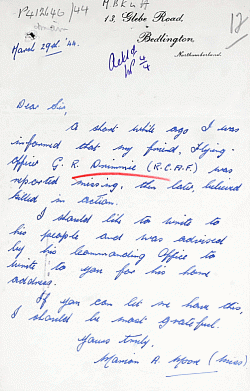 P412646/44
M.B.K.U.H
13, Globe Road,
Bedlington,
Northumberland.
12
March 29th '44.
Ack'd
4/4
Dear Sir,
A short while ago I was
informed that my friend, Flying
Officer G. R. Dimmie (R.C.A.F.) was
reported missing, then later, believed
killed in action.
I should like to write to
his people and was advised
by his Commanding Office to
write to you for his home
address.
If you can let me have this,
I should be most grateful.
Yours truly,
Marion A. Wood (Miss)